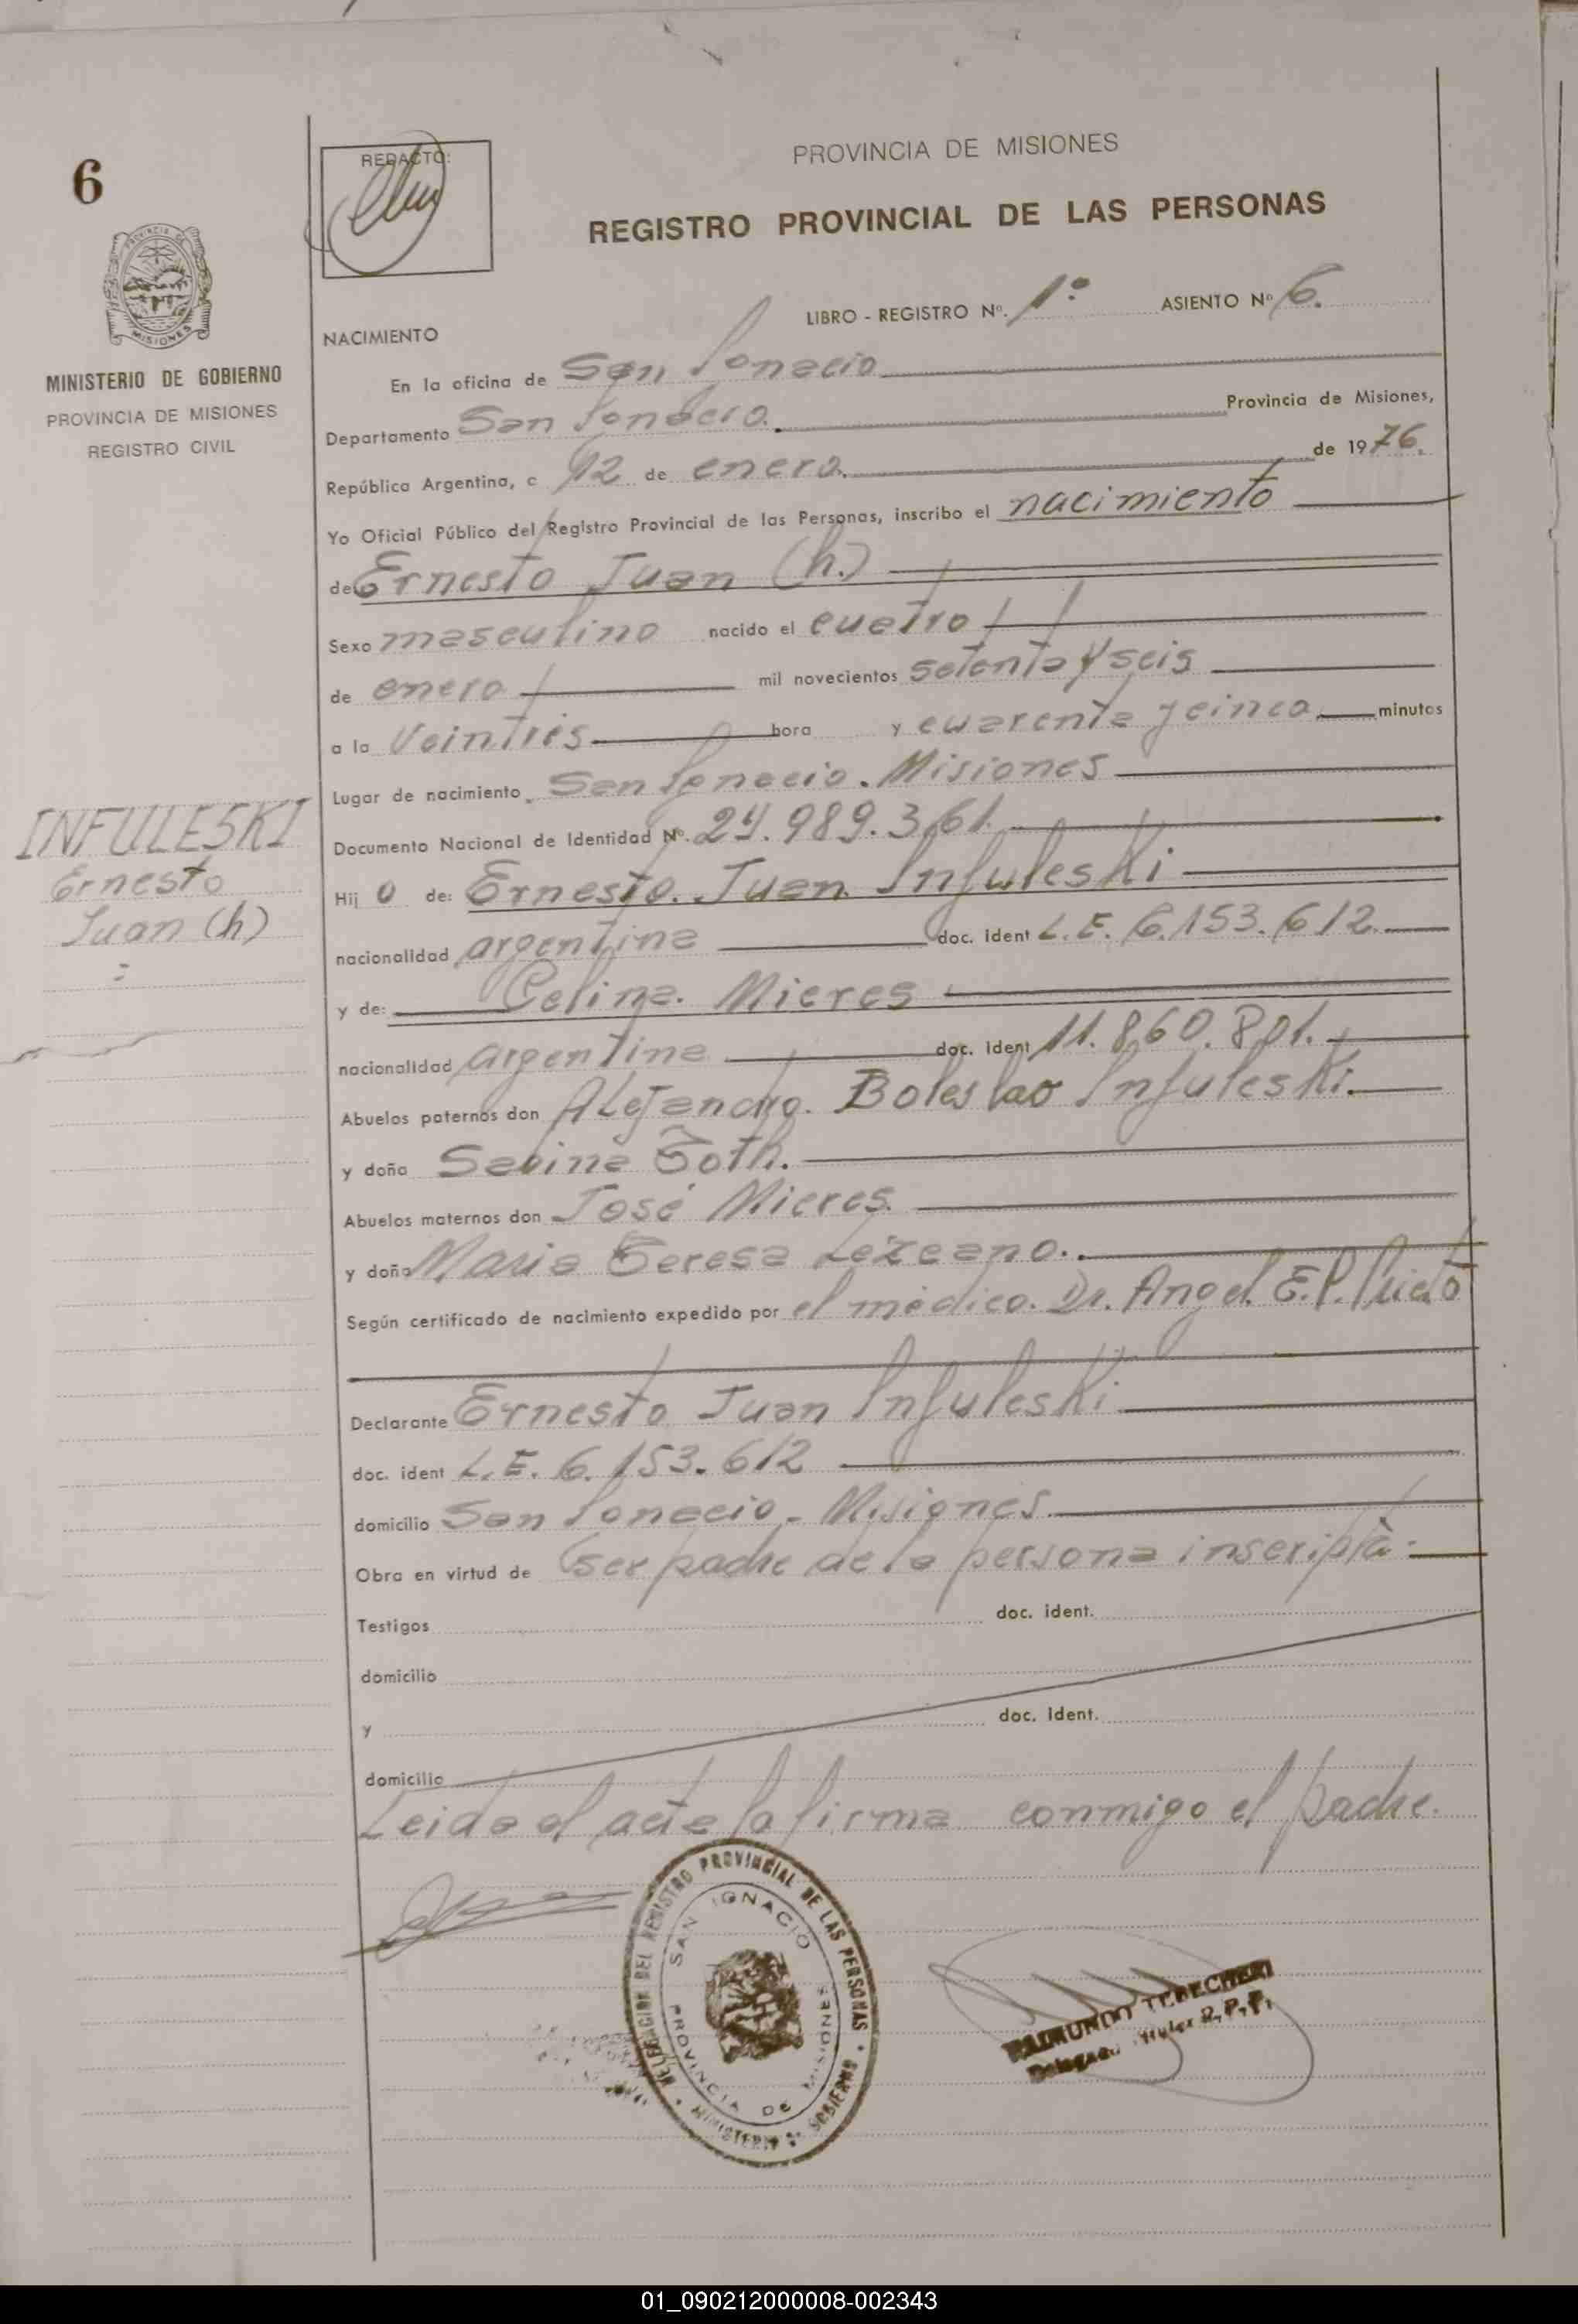 6
REDACTÓ:
PROVINCIA DE MISIONES
REGISTRO PROVINCIAL DE LAS PERSONAS
MINISTERIO DE GOBIERNO
PROVINCIA DE MISIONES
REGISTRO CIVIL
LIBRO - REGISTRO Nº. 1º ASIENTO Nº 6.
NACIMIENTO
En la oficina de San Ignacio
Departamento San Ignacio. Provincia de Misiones,
República Argentina, a 12 de enero. de 1976.
Yo Oficial Público del Registro Provincial de las Personas, inscribo el nacimiento
de Ernesto Juan (h.)
Sexo masculino nacido el cuatro
de enero mil novecientos setenta y seis
a la Veintrés hora y cuarenta y cinco minutos
Lugar de nacimiento San Ignacio. Misiones
Documento Nacional de Identidad Nº. 24.989.361.
Hij o de: Ernesto. Juan Infuleski
nacionalidad argentina doc. ident L.E. 6.153.612.
y de: Celina. Mieres
nacionalidad argentina doc. ident 11.860.801.
Abuelos paternos don Alejandro. Boleslao Infuleski.
y doña Sabina Toth.
Abuelos maternos don José Mieres.
y doña Maria Teresa Lezcano.
Según certificado de nacimiento expedido por el médico. Dr. Angel E.P. Prieto
Declarante Ernesto Juan Infuleski
doc. ident L.E. 6.153.612
domicilio San Ignacio - Misiones.
Obra en virtud de ser padre de la persona inscripta.
Testigos doc. ident.
domicilio
y doc. ident.
domicilio
Leida el acta la firma conmigo el padre.
INFULESKI
Ernesto
Juan (h)
DELEGACION DEL REGISTRO PROVINCIAL DE LAS PERSONAS
SAN IGNACIO
PROVINCIA DE MISIONES
MINISTERIO DE GOBIERNO
RAIMUNDO
01_090212000008-002343